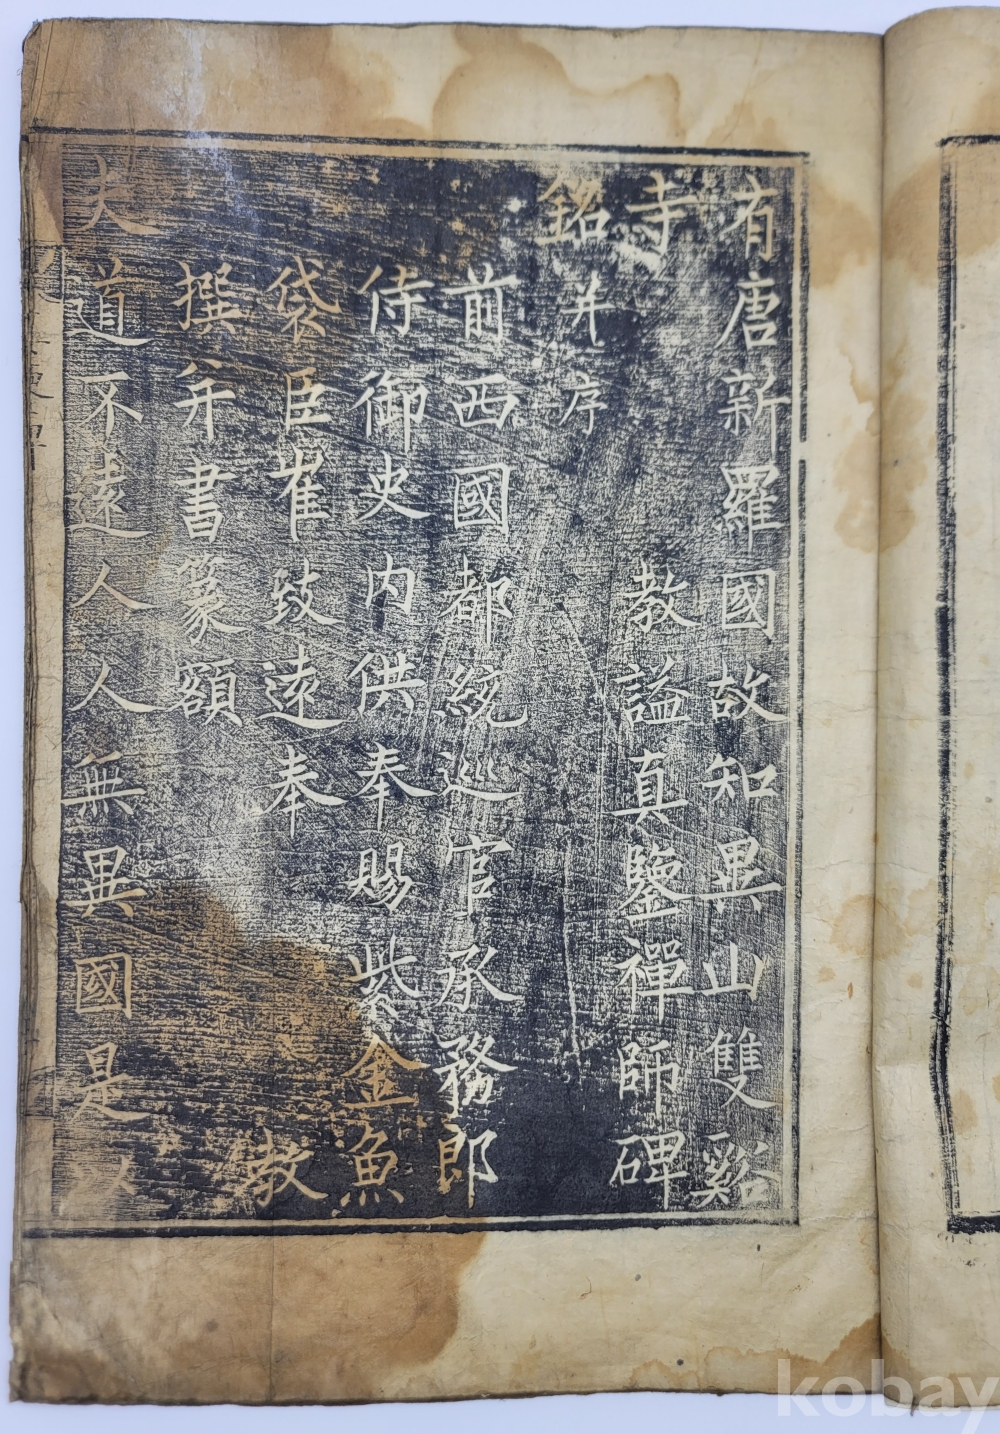 有唐新羅國故知異山雙谿
寺 教謚真鑒禪師碑
銘并序
前西國都統巡官承務郎
侍御史內供奉賜紫金魚
袋臣崔致遠奉 教
撰并書篆額
夫道不遠人人無異國是以
kobay